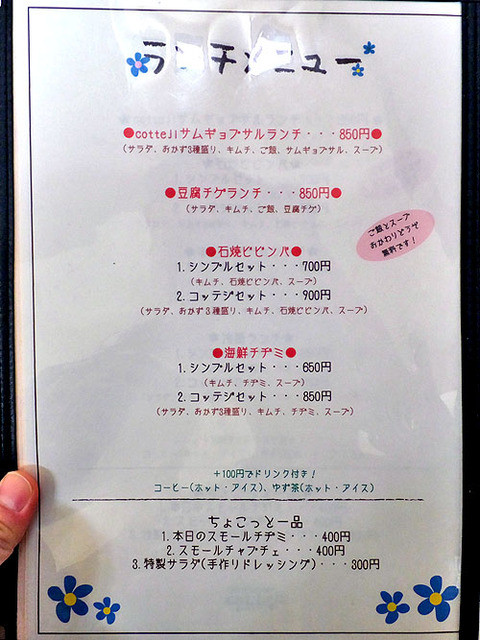 ランチメニュー
●cottejiサムギョプサルランチ・・・850円●
(サラダ、おかず3種盛り、キムチ、ご飯、サムギョプサル、スープ)
●豆腐チゲランチ・・・850円●
(サラダ、キムチ、ご飯、豆腐チゲ)
ご飯とスープ
おかわりどうぞ
無料です!
●石焼ビビンバ●
1.シンプルセット・・・700円
(キムチ、石焼ビビンバ、スープ)
2.コッテジセット・・・900円
(サラダ、おかず3種盛り、キムチ、石焼ビビンバ、スープ)
●海鮮チヂミ●
1.シンプルセット・・・650円
(キムチ、チヂミ、スープ)
2.コッテジセット・・・850円
(サラダ、おかず3種盛り、キムチ、チヂミ、スープ)
+100円でドリンク付き!
コーヒー(ホット・アイス)、ゆず茶(ホット・アイス)
ちょこっと一品
1.本日のスモールチヂミ・・・400円
2.スモールチャプチェ・・・400円
3.特製サラダ(手作りドレッシング)・・・300円